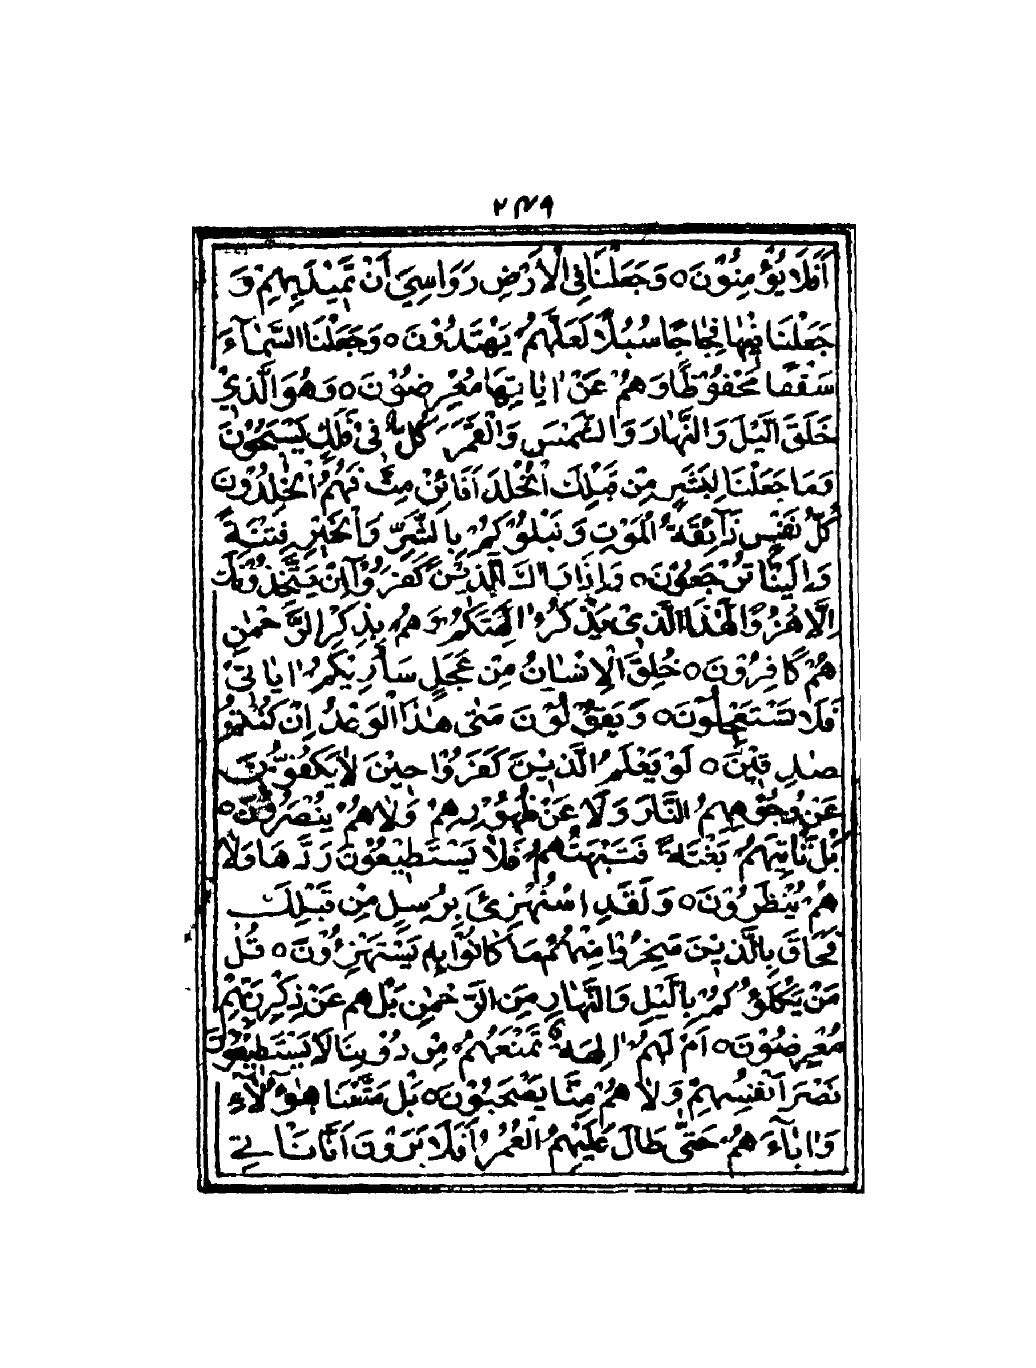 ۲۴۹
أَفَلَا يُؤْمِنُوْنَ ○ وَجَعَلْنَا فِي الْأَرْضِ رَوَاسِيَ أَنْ تَمِيْدَ بِهِمْ وَ
جَعَلْنَا فِيْهَا فِجَاجًا سُبُلًا لَعَلَّهُمْ يَهْتَدُوْنَ ○ وَجَعَلْنَا السَّمَآءَ
سَقْفًا مَحْفُوْظًا وَهُمْ عَنْ اٰيَاتِهَا مُعْرِضُوْنَ ○ وَهُوَ الَّذِيْ
خَلَقَ الَّيْلَ وَالنَّهَارَ وَالشَّمْسَ وَالْقَمَرَ كُلٌّ فِيْ فَلَكٍ يَسْبَحُوْنَ
وَمَا جَعَلْنَا لِبَشَرٍ مِنْ قَبْلِكَ الْخُلْدَ أَفَائِنْ مِتَّ فَهُمُ الْخٰلِدُوْنَ
كُلُّ نَفْسٍ ذَآئِقَةُ الْمَوْتِ وَنَبْلُوْكُمْ بِالشَّرِّ وَالْخَيْرِ فِتْنَةً
وَإِلَيْنَا تُرْجَعُوْنَ ○ وَإِذَا رَاٰكَ الَّذِيْنَ كَفَرُوْآ إِنْ يَتَّخِذُوْنَكَ
إِلَّا هُزُوًا أَهٰذَا الَّذِيْ يَذْكُرُ اٰلِهَتَكُمْ وَهُمْ بِذِكْرِ الرَّحْمٰنِ
هُمْ كَافِرُوْنَ ○ خُلِقَ الْإِنْسَانُ مِنْ عَجَلٍ سَأُرِيْكُمْ اٰيَاتِيْ
فَلَا تَسْتَعْجِلُوْنَ ○ وَيَقُوْلُوْنَ مَتٰى هٰذَا الْوَعْدُ إِنْ كُنْتُمْ
صٰدِقِيْنَ ○ لَوْ يَعْلَمُ الَّذِيْنَ كَفَرُوْا حِيْنَ لَا يَكُفُّوْنَ
عَنْ وُجُوْهِهِمُ النَّارَ وَلَا عَنْ ظُهُوْرِهِمْ وَلَا هُمْ يُنْصَرُوْنَ ○
بَلْ تَأْتِيْهِمْ بَغْتَةً فَتَبْهَتُهُمْ فَلَا يَسْتَطِيْعُوْنَ رَدَّهَا وَلَا
هُمْ يُنْظَرُوْنَ ○ وَلَقَدِ اسْتُهْزِئَ بِرُسُلٍ مِنْ قَبْلِكَ
فَحَاقَ بِالَّذِيْنَ سَخِرُوْا مِنْهُمْ مَا كَانُوْا بِهٖ يَسْتَهْزِءُوْنَ ○ قُلْ
مَنْ يَكْلَؤُكُمْ بِالَّيْلِ وَالنَّهَارِ مِنَ الرَّحْمٰنِ بَلْ هُمْ عَنْ ذِكْرِ رَبِّهِمْ
مُعْرِضُوْنَ ○ أَمْ لَهُمْ اٰلِهَةٌ تَمْنَعُهُمْ مِنْ دُوْنِنَا لَا يَسْتَطِيْعُوْنَ
نَصْرَ أَنْفُسِهِمْ وَلَا هُمْ مِنَّا يُصْحَبُوْنَ ○ بَلْ مَتَّعْنَا هٰؤُلَآءِ
وَاٰبَآءَهُمْ حَتّٰى طَالَ عَلَيْهِمُ الْعُمُرُ أَفَلَا يَرَوْنَ أَنَّا نَأْتِي